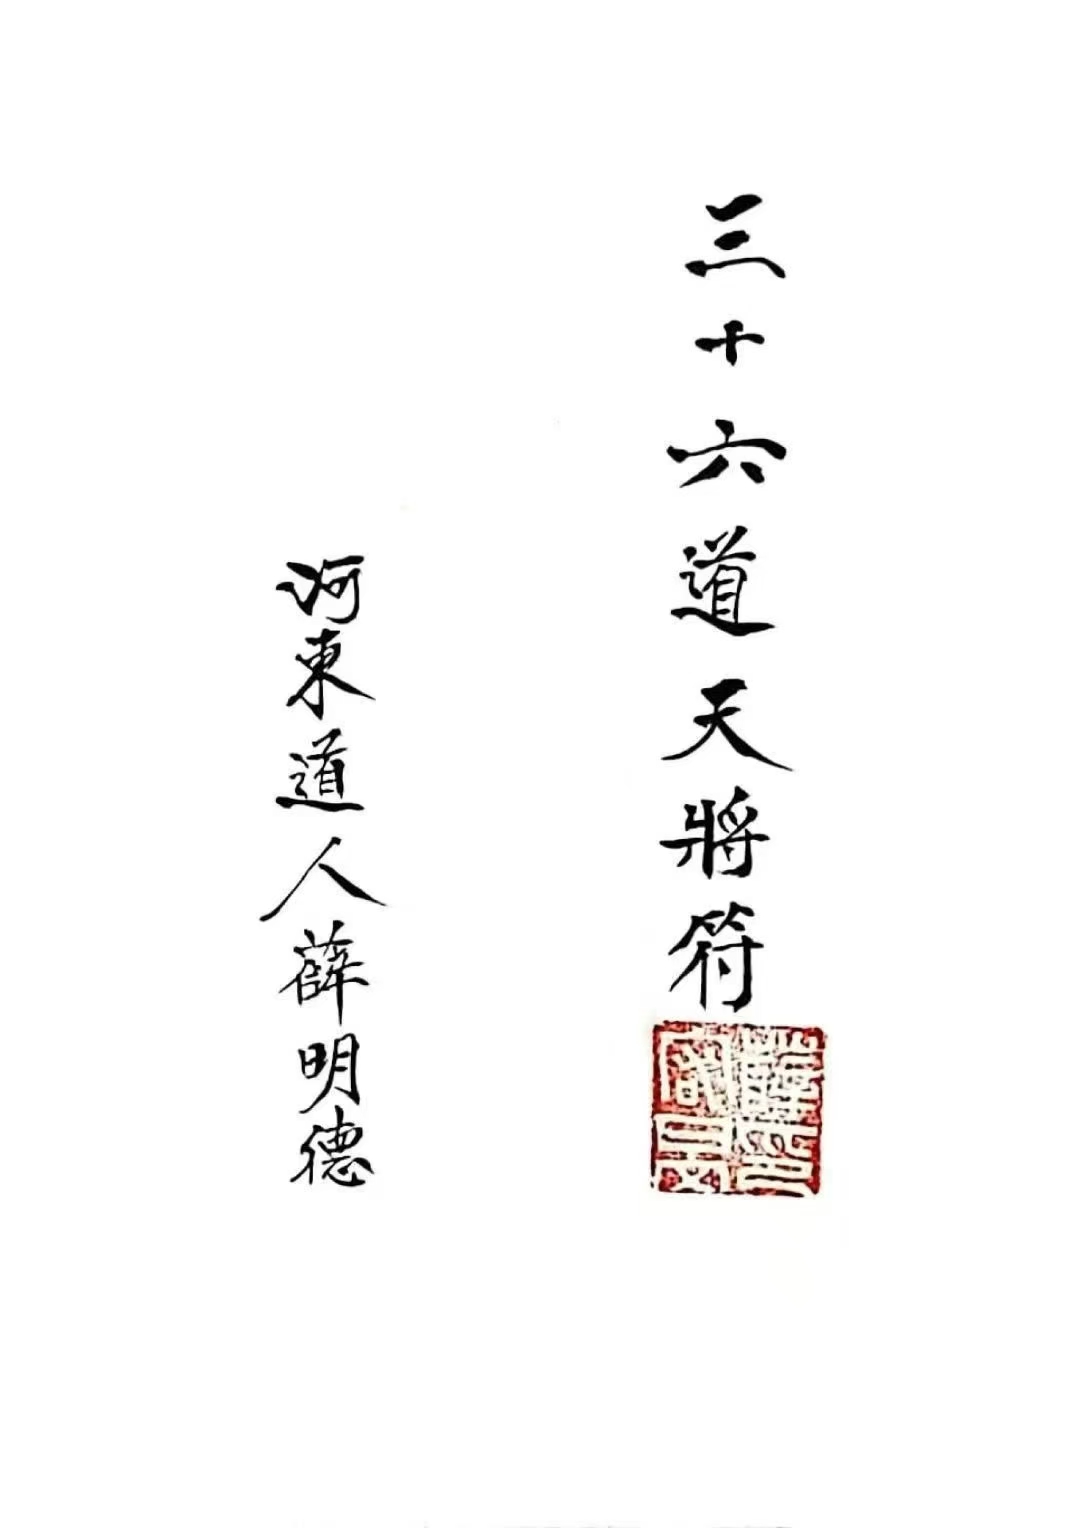 三十六道天將符
河東道人薛明德